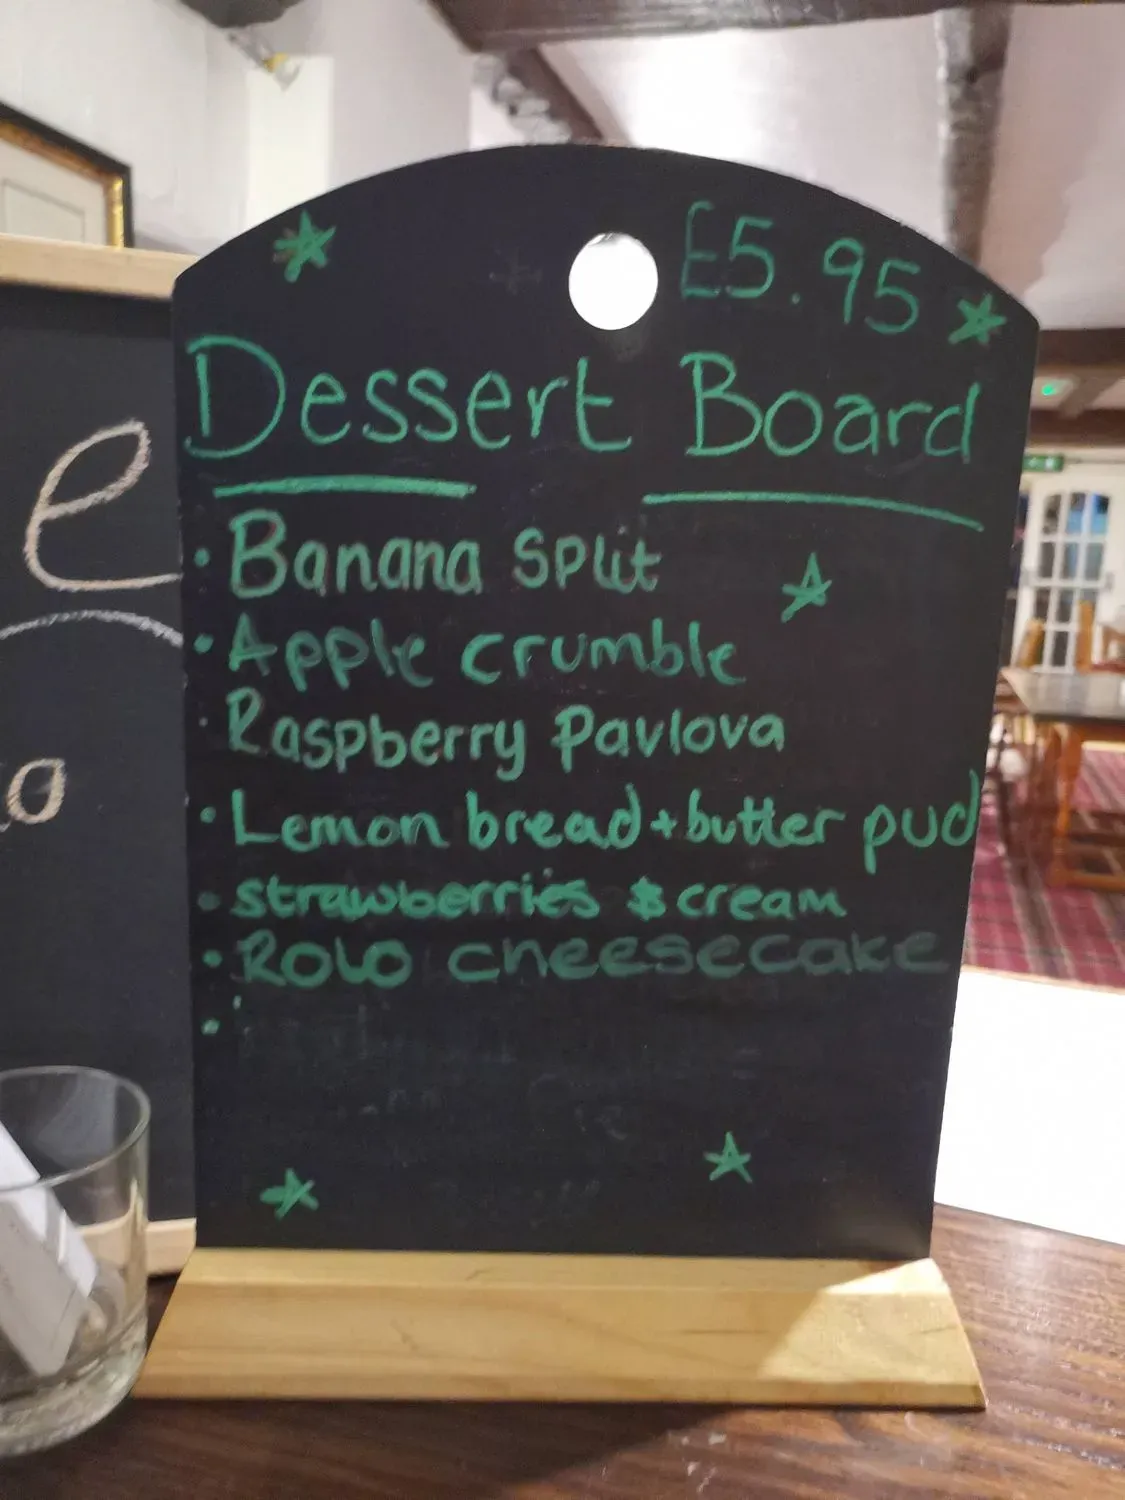 £5.95
Dessert Board
• Banana Split
• Apple crumble
• Raspberry Pavlova
• Lemon bread + butter pud
• strawberries & cream
• Rolo cheesecake
•
e
o